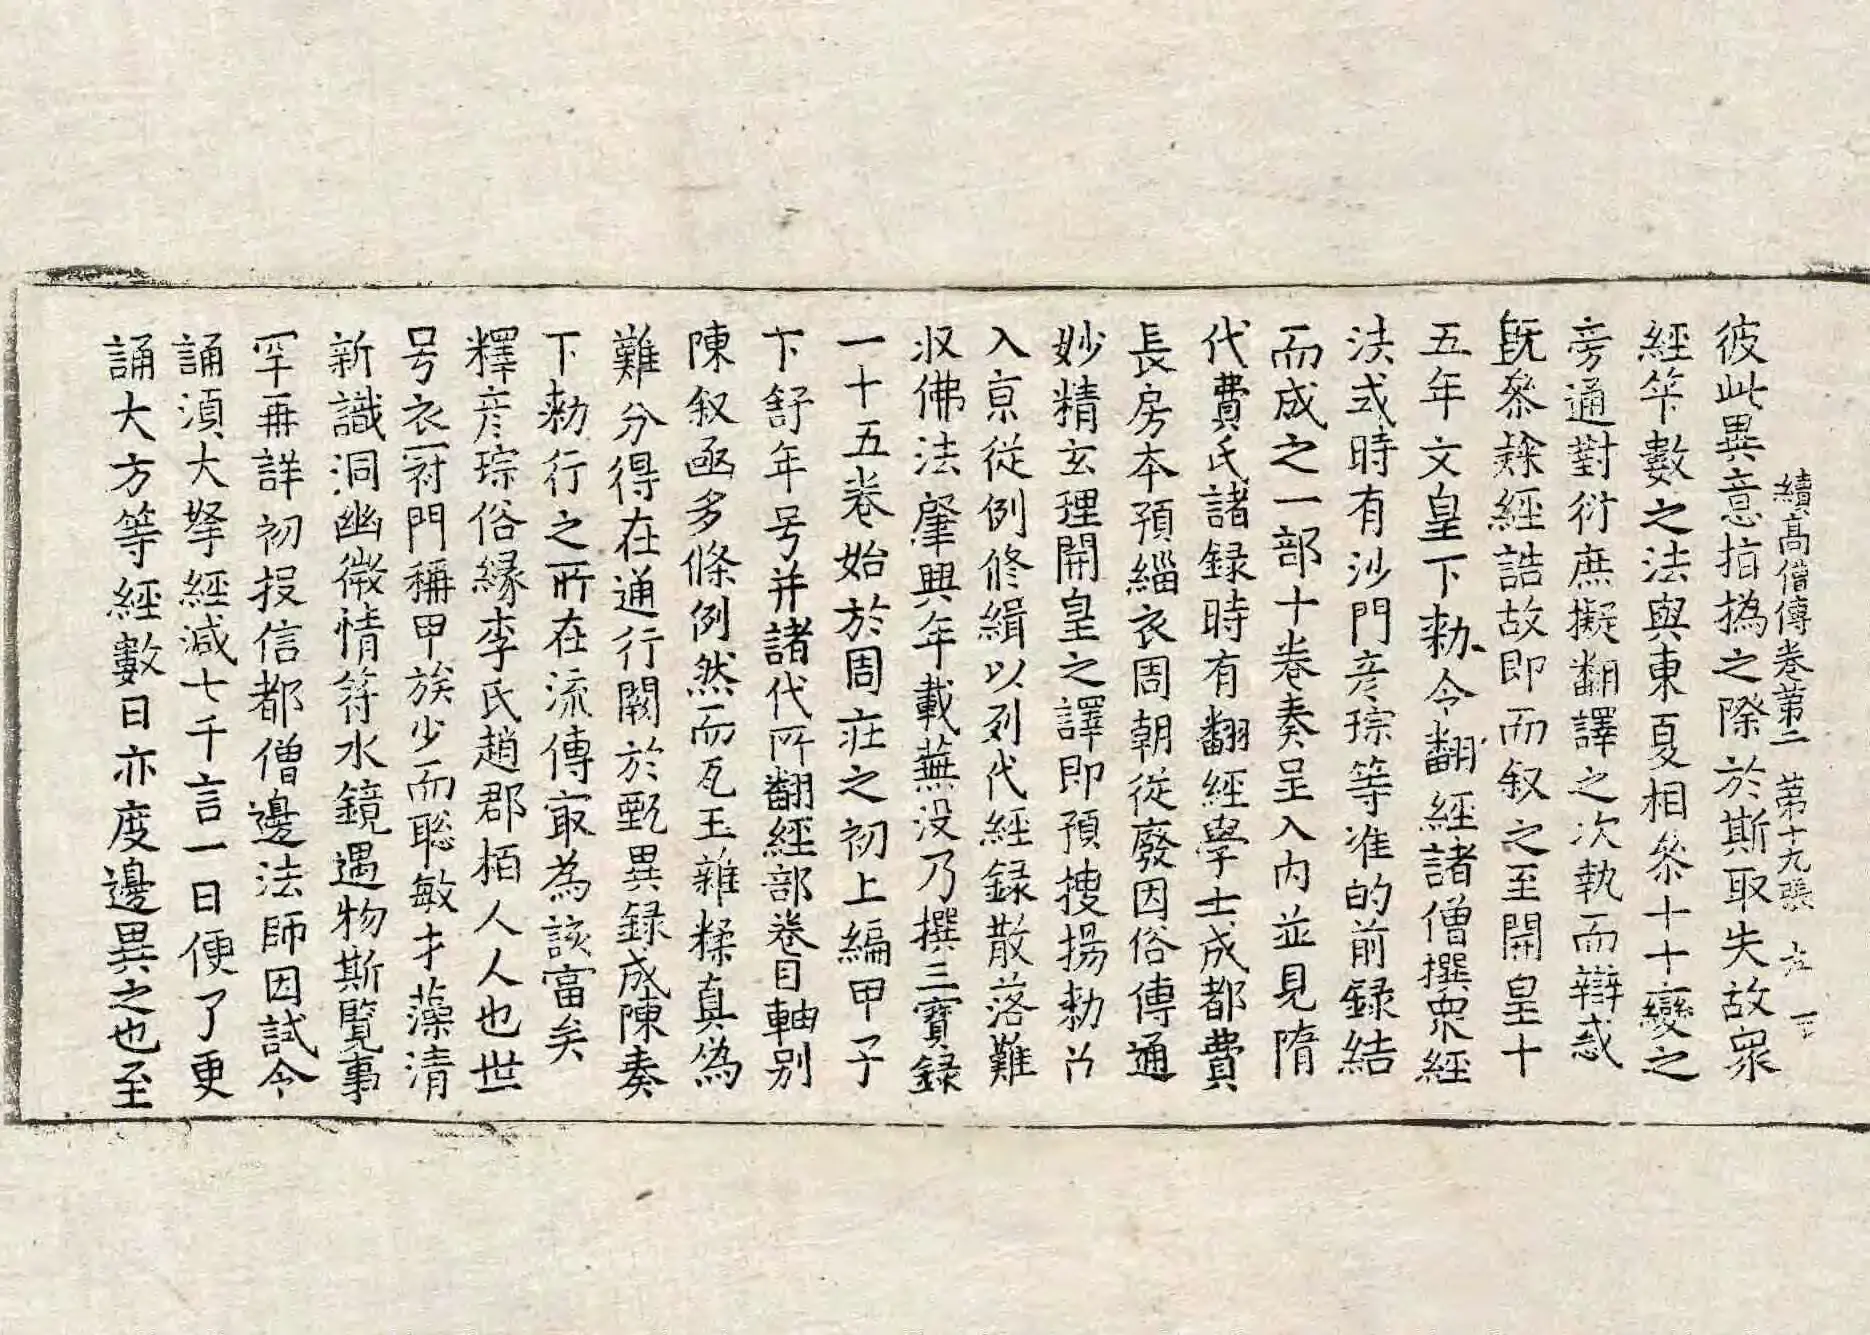 續高僧傳卷第二 第十九張
彼此異意指撝之際於斯取失故衆
經筭數之法與東夏相叅十十變之
旁通對衍庶擬翻譯之次執而辯惑
旣叅緣經誥故即而叙之至開皇十
五年文皇下勑令翻經諸僧撰衆經
法式時有沙門彦琮等准的前録結
而成之一部十卷奏呈入內並見隋
代費氏諸録時有翻經學士成都費
長房本預緇衣周朝從廢因俗傳通
妙精玄理開皇之譯即預搜揚勑召
入京從例修緝以列代經録散落難
収佛法肇興年載蕪没乃撰三寶録
一十五卷始於周莊之初上編甲子
下舒年号并諸代所翻經部卷目軸別
陳叙亟多條例然而瓦玉雜糅真偽
難分得在通行闕於甄異録成陳奏
下勑行之所在流傳㝡為該富矣
釋彦琮俗緣李氏趙郡栢人人也世
号衣冠門稱甲族少而聡敏才藻清
新識洞幽微情符水鏡遇物斯覽事
罕再詳初投信都僧邊法師因試令
誦湏大拏經減七千言一日便了更
誦大方等經數日亦度邊異之也至